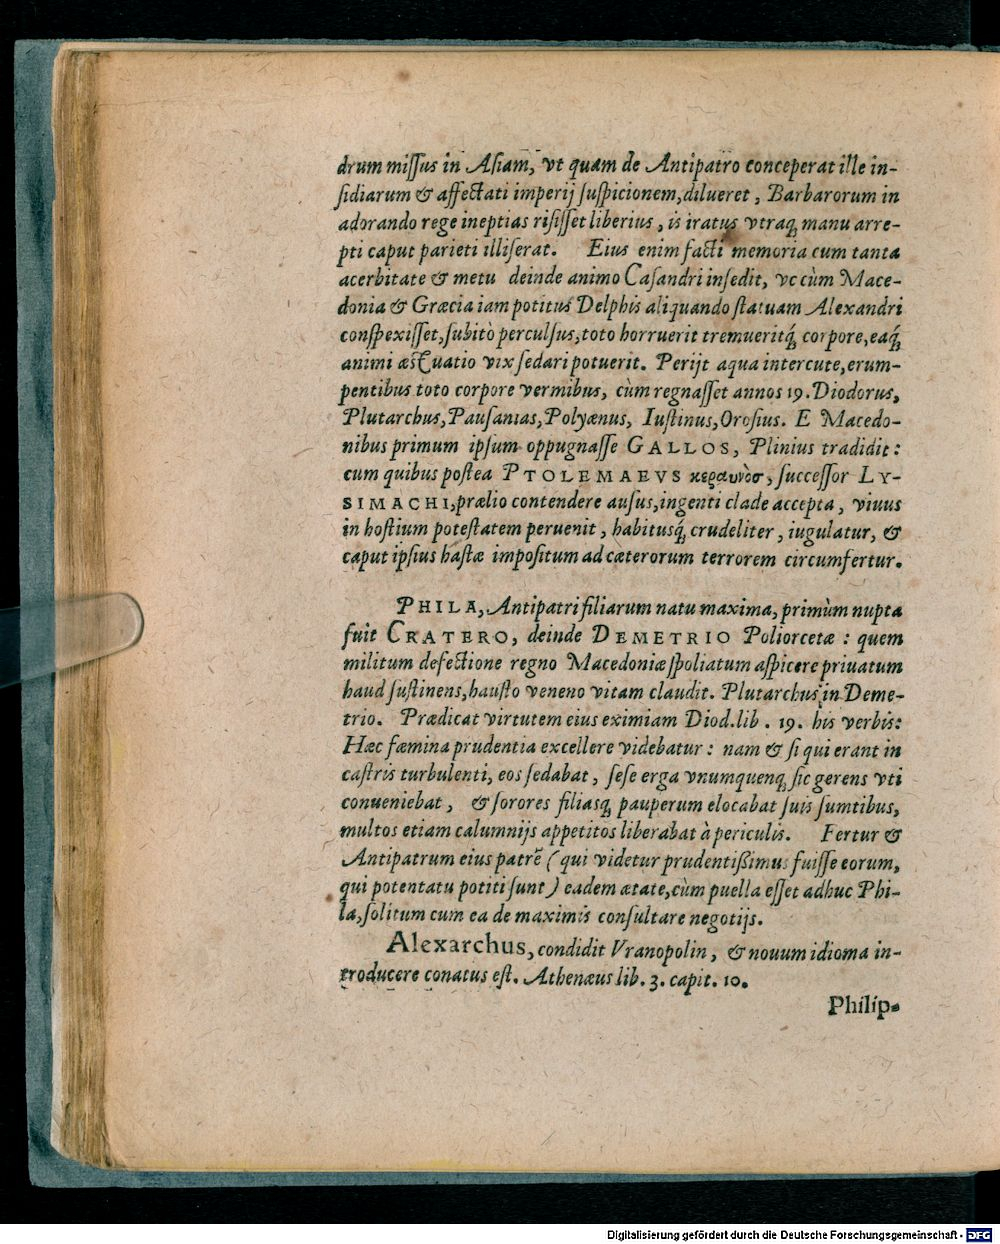 drum miſſus in Aſiam, vt quam de Antipatro conceperat ille in-
ſidiarum & affectati imperij ſuſpicionem, dilueret, Barbarorum in
adorando rege ineptias riſiſſet liberius, is iratus vtraq́ manu arre-
pti caput parieti illiſerat. Eius enim facti memoria cum tanta
acerbitate & metu deinde animo Caſandri inſedit, vt cùm Mace-
donia & Græcia iam potitus Delphis aliquando ſtatuam Alexandri
conſpexiſſet, ſubitò perculſus, toto horruerit tremueritq́ corpore, eaq́
animi æſtuatio vix ſedari potuerit. Perijt aqua intercute, erum-
pentibus toto corpore vermibus, cùm regnaſſet annos 19. Diodorus,
Plutarchus, Pauſanias, Polyænus, Iuſtinus, Oroſius. E Macedo-
nibus primum ipſum oppugnaſſe GALLOS, Plinius tradidit:
cum quibus poſtea PTOLEMAEVS κεραυνὸσ, ſucceſſor LY-
SIMACHI, prælio contendere auſus, ingenti clade accepta, viuus
in hoſtium poteſtatem peruenit, habitusq́ crudeliter, iugulatur, &
caput ipſius haſtæ impoſitum ad cæterorum terrorem circumfertur.
PHILA, Antipatri filiarum natu maxima, primùm nupta
fuit CRATERO, deinde DEMETRIO Poliorcetæ: quem
militum defectione regno Macedoniæ ſpoliatum aſpicere priuatum
haud ſuſtinens, hauſto veneno vitam claudit. Plutarchus in Deme-
trio. Prædicat virtutem eius eximiam Diod. lib. 19. his verbis:
Hæc fæmina prudentia excellere videbatur: nam & ſi qui erant in
caſtris turbulenti, eos ſedabat, ſeſe erga vnumquenq́ ſic gerens vti
conueniebat, & ſorores filiasq́ pauperum elocabat ſuis ſumtibus,
multos etiam calumnijs appetitos liberabat à periculis. Fertur &
Antipatrum eius patrē (qui videtur prudentißimus fuiſſe eorum,
qui potentatu potiti ſunt) eadem ætate, cùm puella eſſet adhuc Phi-
la, ſolitum cum ea de maximis conſultare negotijs.
Alexarchus, condidit Vranopolin, & nouum idioma in-
troducere conatus eſt. Athenæus lib. 3. capit. 10.
Philip-
Digitalisierung gefördert durch die Deutsche Forschungsgemeinschaft - DFG